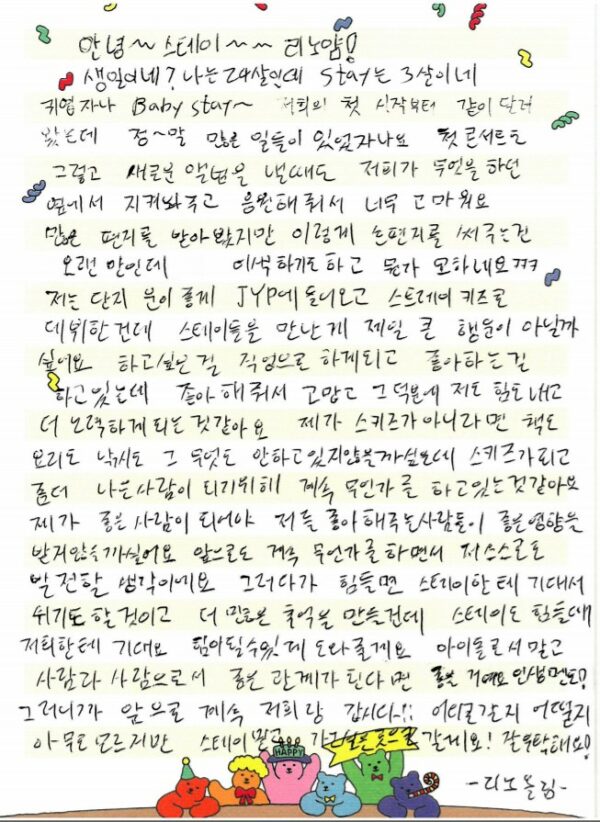 안녕~ 스테이~~ 리노얌!
생일이네? 나는 24살인데 Stay는 3살이네
귀엽자나 Baby stay~ 저희의 첫 시작부터 같이 달려
왔는데 정~말 많은 일들이 있었자나요 첫 콘서트도
그렇고 새로운 앨범을 낼때도 저희가 무엇을 하던
옆에서 지켜봐주고 응원해줘서 너무 고마워요
많은 편지를 받아봤지만 이렇게 손편지를 써주는건
오랜만인데 어색하기도하고 뭔가 묘하네요ㅋㅋ
저는 단지 운이 좋게 JYP에 들어오고 스트레이 키즈로
데뷔한건데 스테이들을 만난게 제일 큰 행운이 아닐까
싶어요 하고싶은걸 직업으로 하게되고 좋아하는걸
하고있는데 좋아해줘서 고맙고 그덕분에 저도 힘도내고
더 노력하게 되는것같아요 제가 스키즈가아니라면 책도
요리도 낚시도 그 무엇도 안하고있지않을까싶은데 스키즈가되고
좀더 나은사람이 되기위해 계속 무언가를 하고있는것같아요
제가 좋은 사람이 되어야 저를 좋아해주는사람들이 좋은영향을
받지않을까싶어요 앞으로도 계속 무언가를하면서 저스스로도
발전할 생각이에요 그러다가 힘들면 스테이한테 기대서
쉬기도 할것이고 더 많은 추억을 만들건데 스테이도 힘들때
저희한테 기대요 힘이될수있게 도와줄게요 아이돌로서 말고
사람과 사람으로서 좋은 관계가 된다면 좋을 거예요 인생멘토!
그러니까 앞으로 계속 저희랑 갑시다!! 어디로갈지 어떨지
아무도 모르지만 스테이 믿고 가고싶은곳으로 갈게요! 잘부탁해요!
HAPPY
-리노올림-